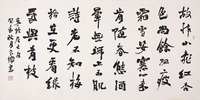 故作小紅桃杏
色尚餘孤瘦
雪霜姿寒心未
肯隨春態酒
暈無端上玉肌
詩老不知梅
格在更看綠
葉與青枝